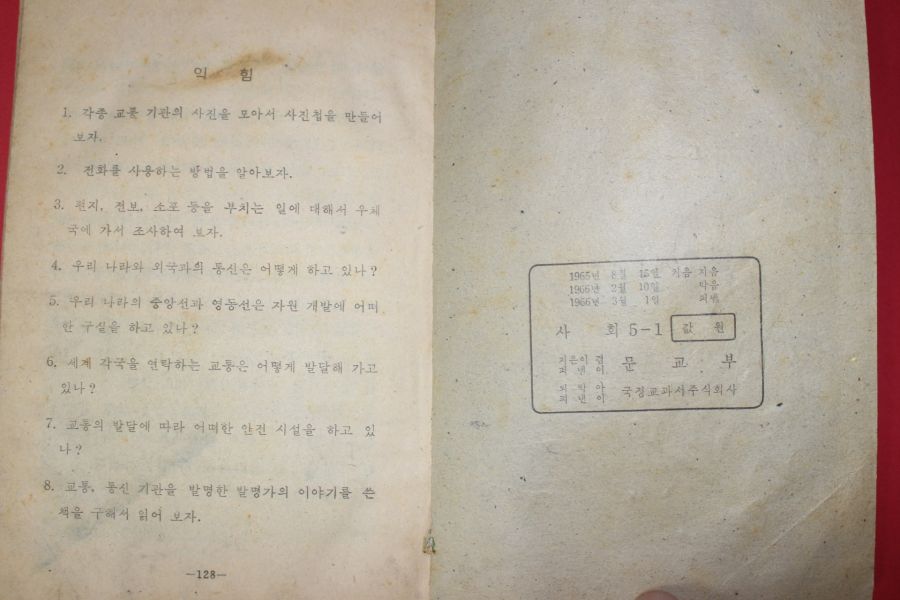 익 힘
1. 각종 교통 기관의 사진을 모아서 사진첩을 만들어
보자.
2. 전화를 사용하는 방법을 알아보자.
3. 편지, 전보, 소포 등을 부치는 일에 대해서 우체
국에 가서 조사하여 보자.
4. 우리 나라와 외국과의 통신은 어떻게 하고 있나?
5. 우리 나라의 중앙선과 영동선은 자원 개발에 어떠
한 구실을 하고 있나?
6. 세계 각국을 연락하는 교통은 어떻게 발달해 가고
있나?
7. 교통의 발달에 따라 어떠한 안전 시설을 하고 있
나?
8. 교통, 통신 기관을 발명한 발명가의 이야기를 쓴
책을 구해서 읽어 보자.
—128—
1965년 8월 15일 처음 지음
1966년 2월 10일 박음
1966년 3월 1일 펴냄
사 회 5-1 값 원
지은이 겸
펴낸이 문 교 부
박아
펴낸이 국정교과서주식회사